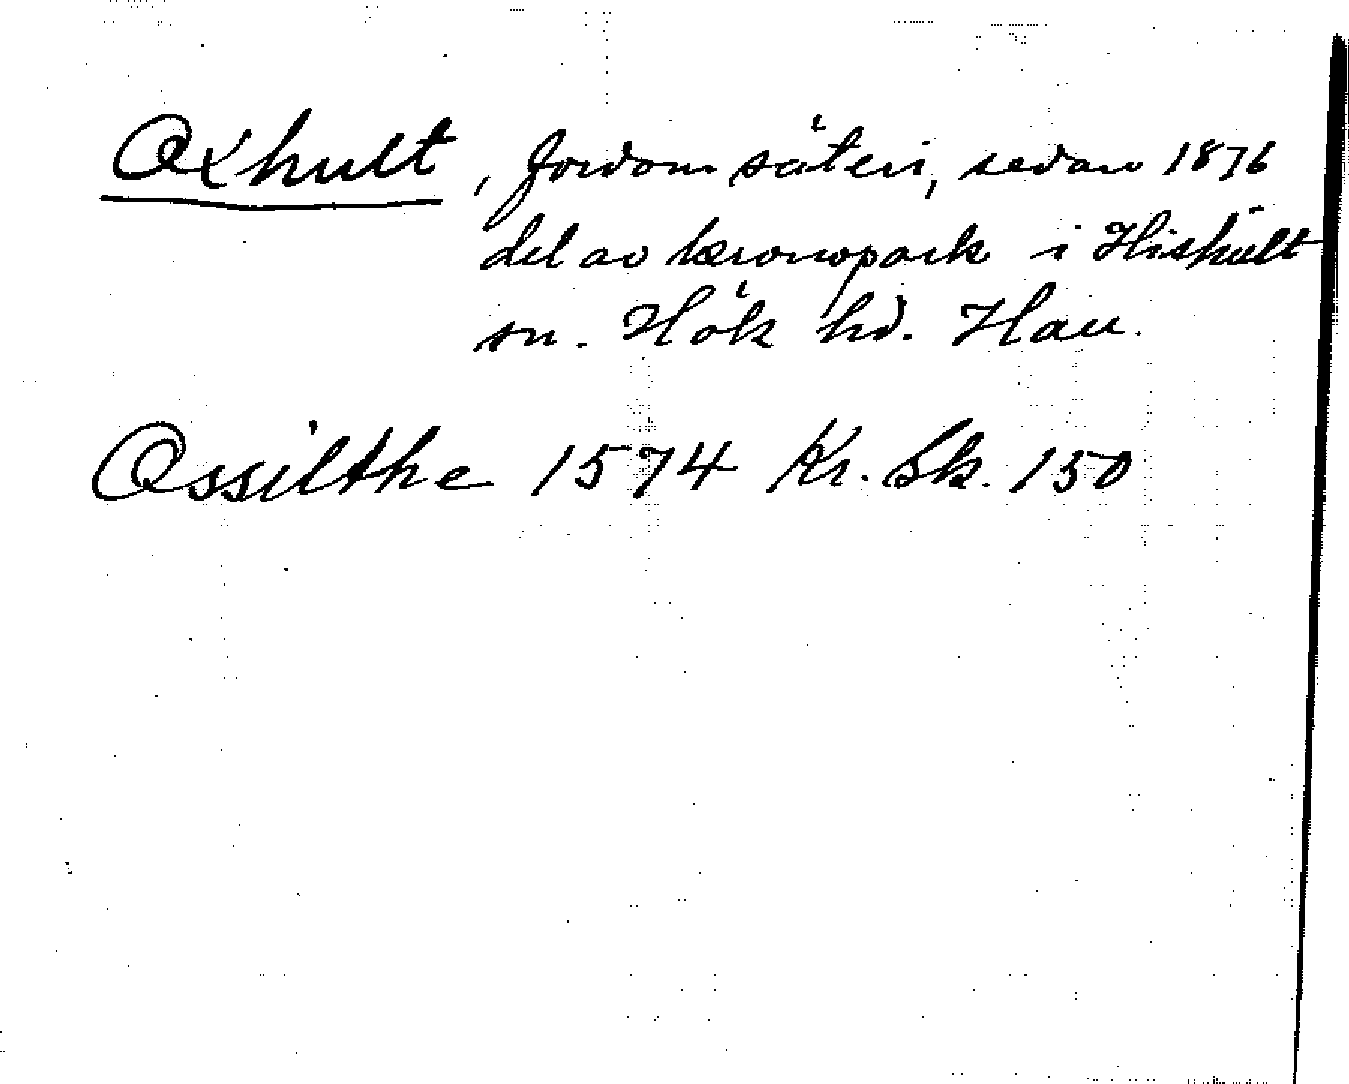 Oxhult, fordom säteri, sedan 1876
del av kronopark i Hishult
sn. Hök hd. Hall.
Ossilthe 1574 Kr. Sk. 150